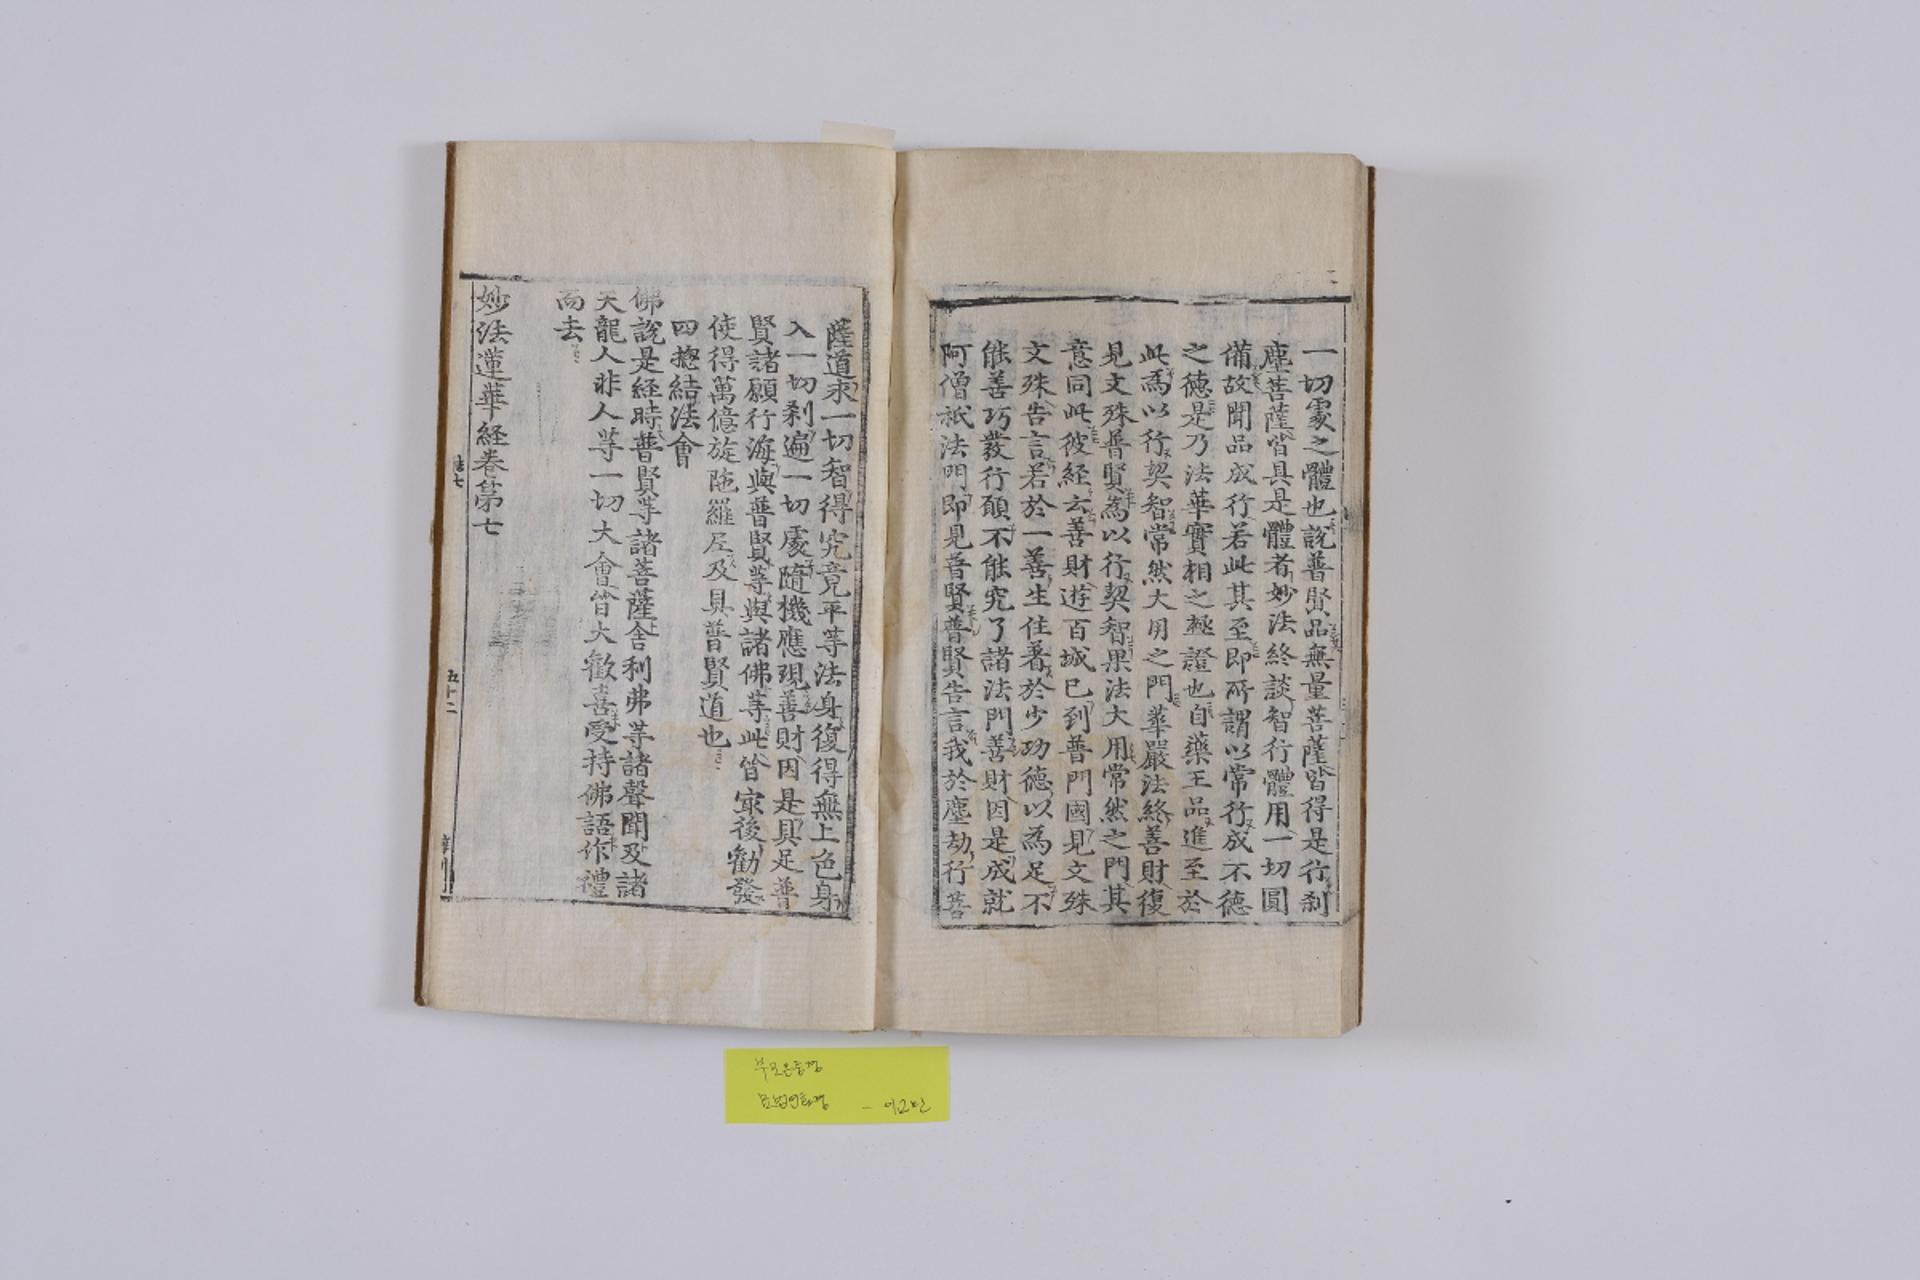 一切處之體也說普賢品無量菩薩皆得是行刹
塵菩薩皆具是體者妙法終談智行體用一切圓
備故聞品成行若此其至即所謂以常行成不德
之德是乃法華實相之極證也自藥王品進至於
此爲以行契智常然大用之門華嚴法終善財復
見文殊普賢爲以行契智果法大用常然之門其
意同此彼経云善財遊百城已到普門國見文殊
文殊告言若於一善生住着於少功德以爲足不
能善巧發行願不能究了諸法門善財因是成就
阿僧祇法門即見普賢普賢告言我於塵劫行菩
薩道求一切智得究竟平等法身復得無上色身
入一切刹遍一切處隨機應現善財因是具足普
賢諸願行海與普賢等與諸佛等此皆冣後勸發
使得萬億旋陁羅尼及具普賢道也
四揔結法會
佛說是経時普賢等諸菩薩舍利弗等諸聲聞及諸
天龍人非人等一切大會皆大歡喜受持佛語作禮
而去
妙法蓮華経卷第七
法七
五十二
부모은중경
묘법연화경